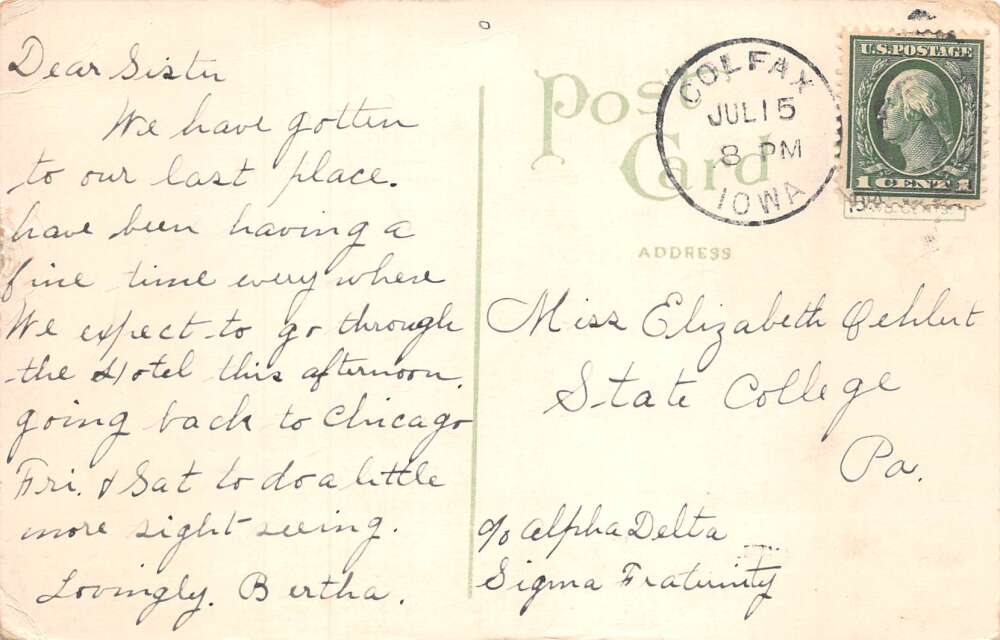 Dear Sister
We have gotten
to our last place.
have been having a
fine time every where
We expect to go through
the Hotel this afternoon.
going back to Chicago
Fri. & Sat to do a little
more sight seeing.
Lovingly. Bertha.
Post
Card
COLFAX
JUL 15
8 PM
IOWA
U.S. POSTAGE
1 CENT 1
ADDRESS
Miss Elizabeth Oehlert
State College
Pa.
c/o Alpha Delta
Sigma Fraternity